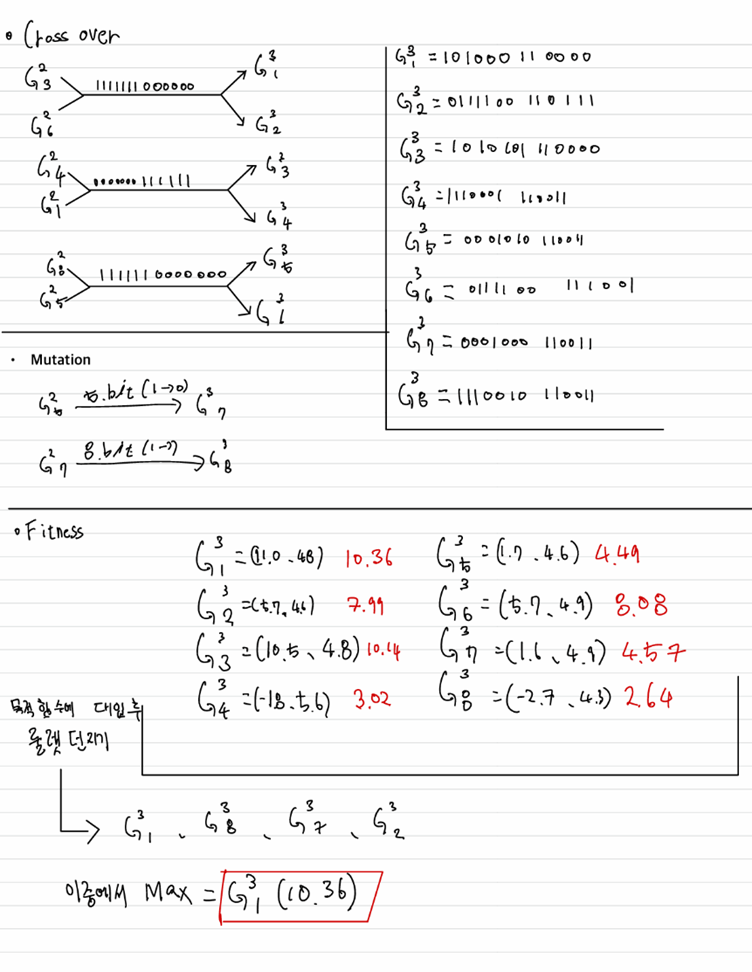 • Cross over
G₃² G₆² 1111111 000000 G₁³ G₂³
G₄² G₁² 0000000 111111 G₃² G₄³
G₈² G₅² 111111 0000000 G₅³
G₁³ = 101000 11 0000
G₂³ = 0111100 110111
G₃³ = 1010101 110000
G₄³ = 1110001 110011
G₅³ = 0001010 11001
G₆³ = 0111100 111001
G₇³ = 0001000 110011
G₈³ = 1110010 110011
• Mutation
G₅² 5.bit (1→0) G₇³
G₇² 8.bit G₈³
• Fitness
G₁³ = (11.0、4.8) 10.36
G₂³ = (5.7、4.6) 7.99
G₃³ = (10.5、4.8) 10.14
G₄³ = (-1.8、5.6) 3.02
G₅³ = (1.7、4.6) 4.49
G₆³ = (5.7、4.9) 8.08
G₇³ = (1.6、4.9) 4.57
G₈³ = (-2.7、4.3) 2.64
목적함수에 대입후
룰렛 던지기
G₁³、G₈³、G₇³、G₂³
이중에서 Max = G₁³ (10.36)